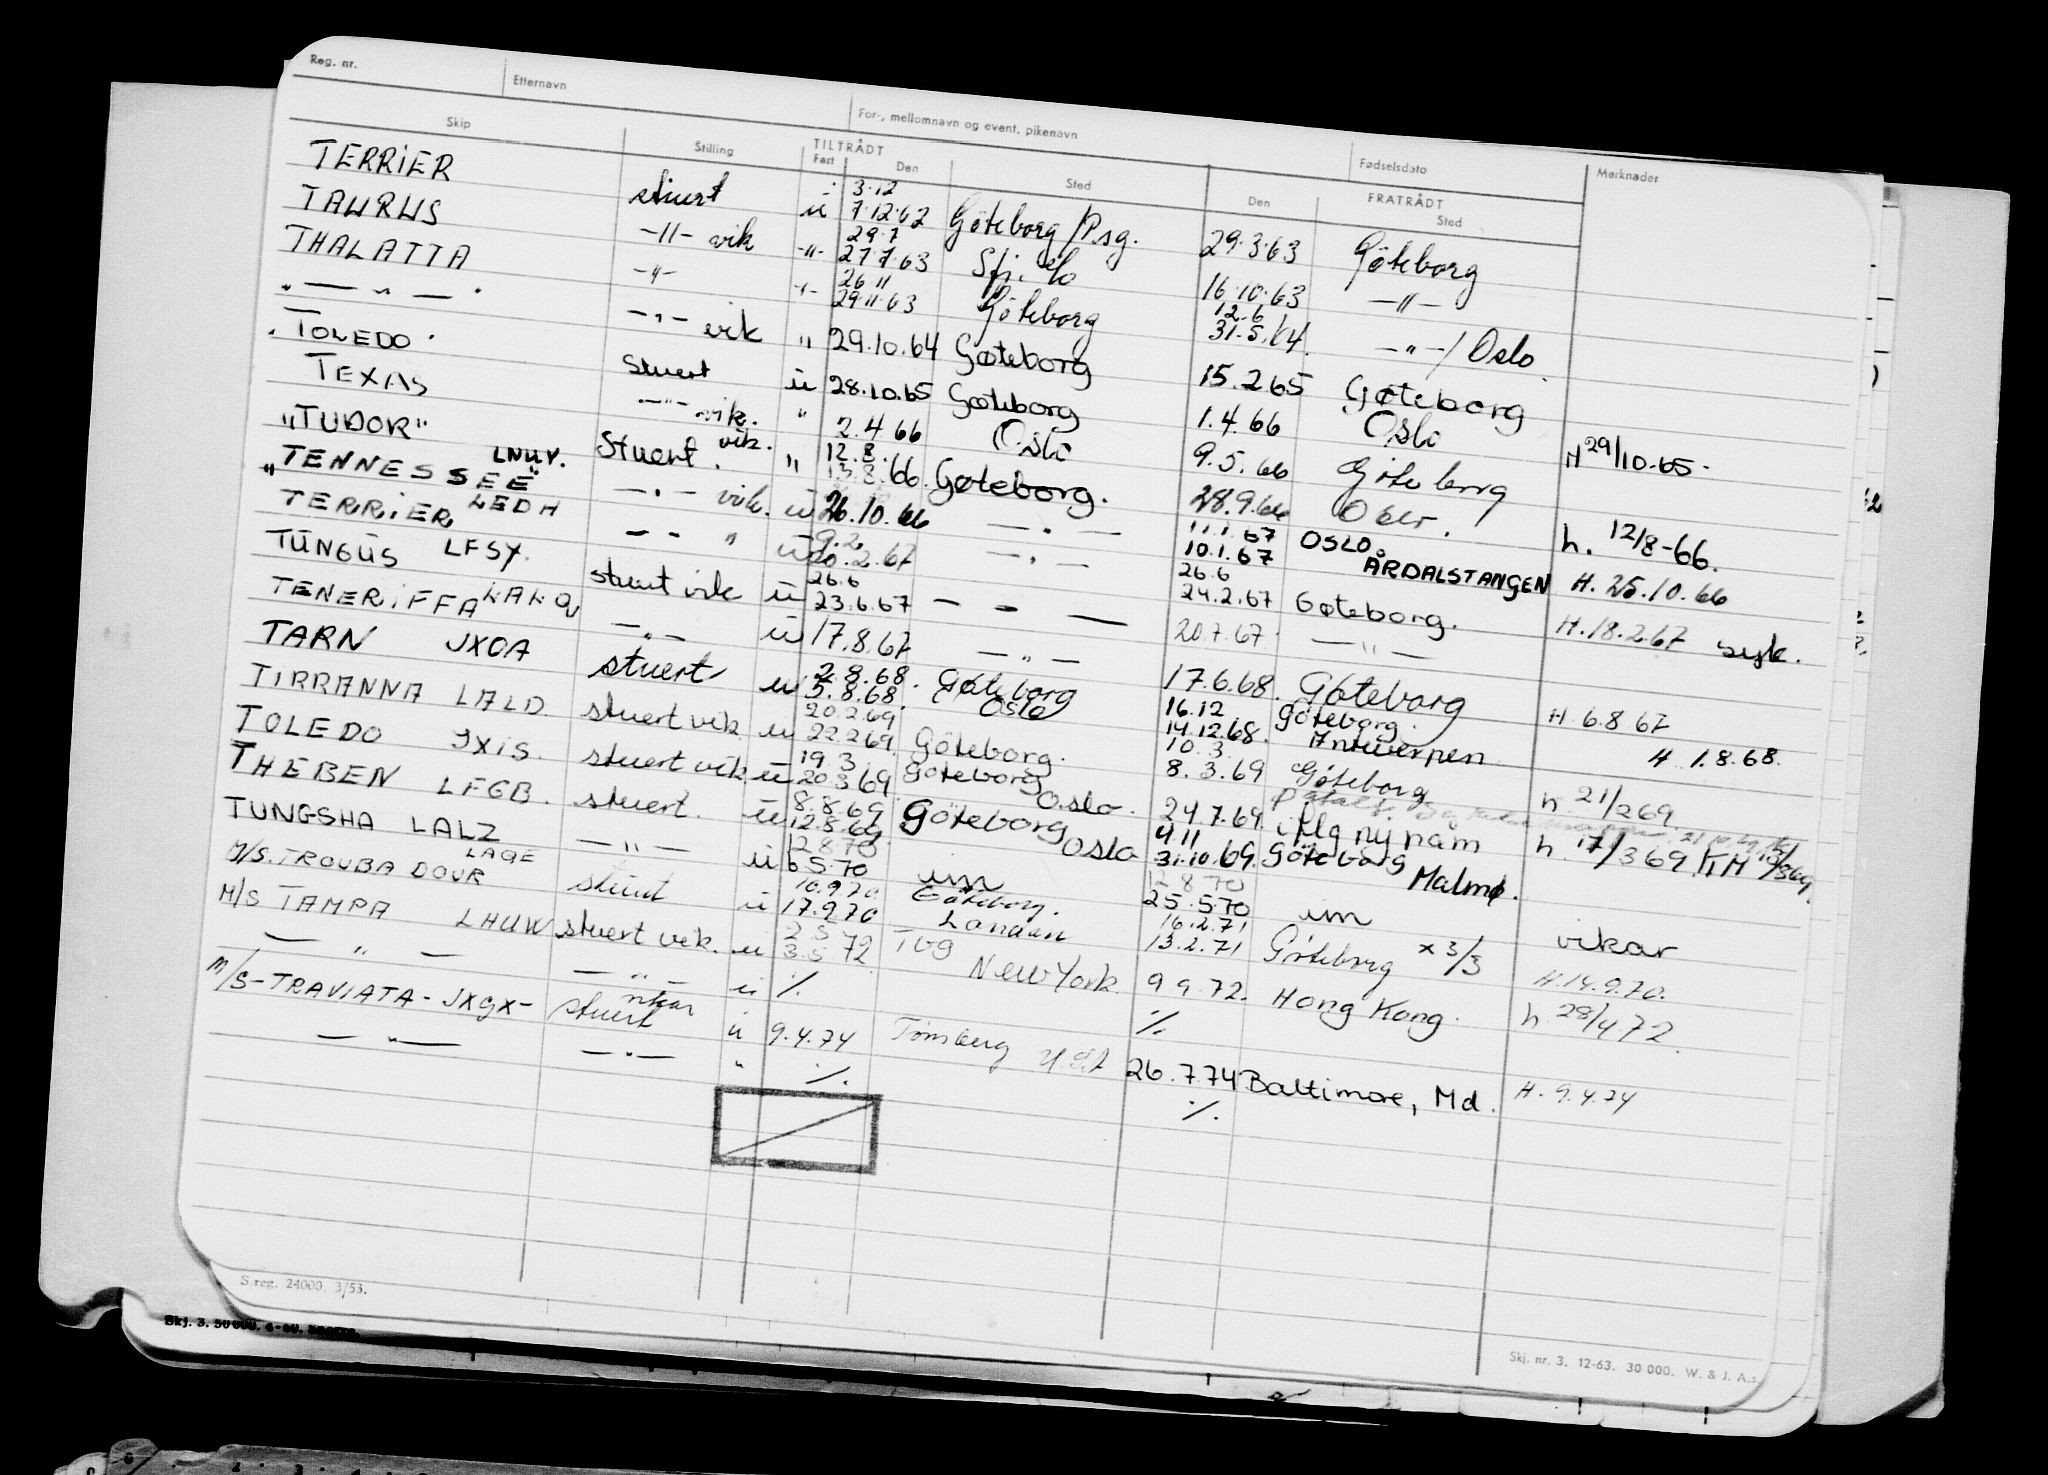 Reg. nr. Etternavn For-, mellomnavn og event. pikenavn Fødselsdato Merknader
Skip Stilling TILTRÅDT Fart Den Sted Den FRATRÅDT Sted
TERRIER stuert u 3.12 7.12.62 Göteborg /P.sg. 29.3.63 Göteborg
TAURUS -"- vik -"- 29.7 27.7.63 16.10.63 -"-
THALATTA -"- -"- 26.11 29.11.63 Göteborg 12.6 31.5.64. -"-/ Oslo
" — " — " -"- vik " 29.10.64 Gøteborg 15.2.65 Gøteborg
TOLEDO Stuert u 28.10.65 Gøteborg 1.4.66 Oslo H 29/10.65.
TEXAS -"- vik. " 2.4.66 Oslo 9.5.66 Göteborg
"TUDOR" LNUV. Stuert. vik. " 12.8. 13.8.66. Gøteborg. 28.9.66 Oslo. h. 12/8-66.
"TENNESSEE" LEDH -"- vik. u 26.10.66 — " — 11.1.67 10.1.67 OSLO. ÅRDALSTANGEN H. 25.10.66
TERRIER LFSY. - - " u 9.2. 20.2.67 — " — 26.6 24.2.67 Gøteborg. H. 18.2.67 syk.
TUNGUS LAKQ stuert vik u 26.6 23.6.67 — " — 20.7.67 — " —
TENERIFFA JXOA — " — u 17.8.67 — " — 17.6.68. Gøteborg H. 6.8.67
TARN stuert u 2.8.68. 5.8.68. Gøteborg Oslo 16.12 14.12.68. Göteborg. Antwerpen H. 1.8.68.
TIRRANNA LALD. stuert vik u 20.2.69 22.2.69 Göteborg. 10.3 8.3.69 Göteborg h 21/2 69.
TOLEDO JXIS. stuert vik u 19.3 20.3.69 Göteborg Oslo. 24.7.69. i flg ny nam h. 17/3 69 KM
THEBEN LFGB. stuert. u 8.8.69 12.8.69 Göteborg Oslo 4.11 31.10.69. Göteborg Malmø.
TUNGSHA LALZ — " — u 12.8.70 6.5.70 um 12.8.70 25.5.70 um vikar
M/S. TROUBADOUR LAGE stuert u 10.9.70 17.9.70 Göteborg. London 16.2.71 13.2.71 Göteborg x 3/3 H. 14.9.70.
M/S TAMPA LHUW stuert vik. u 2.5 3.5.72. New York 9.9.72. Hong Kong. h. 28/4 72.
— " — — " — u %. %
M/S-TRAVIATA-JXGX- stuert vikar u 9.4.74 Tønsberg 26.7.74 Baltimore, Md. H. 9.4.74
— " — — " — " %. %.
S reg. 24000. 3/53.
Skj. nr. 3. 12-63. 30 000. W. & J. A.s.